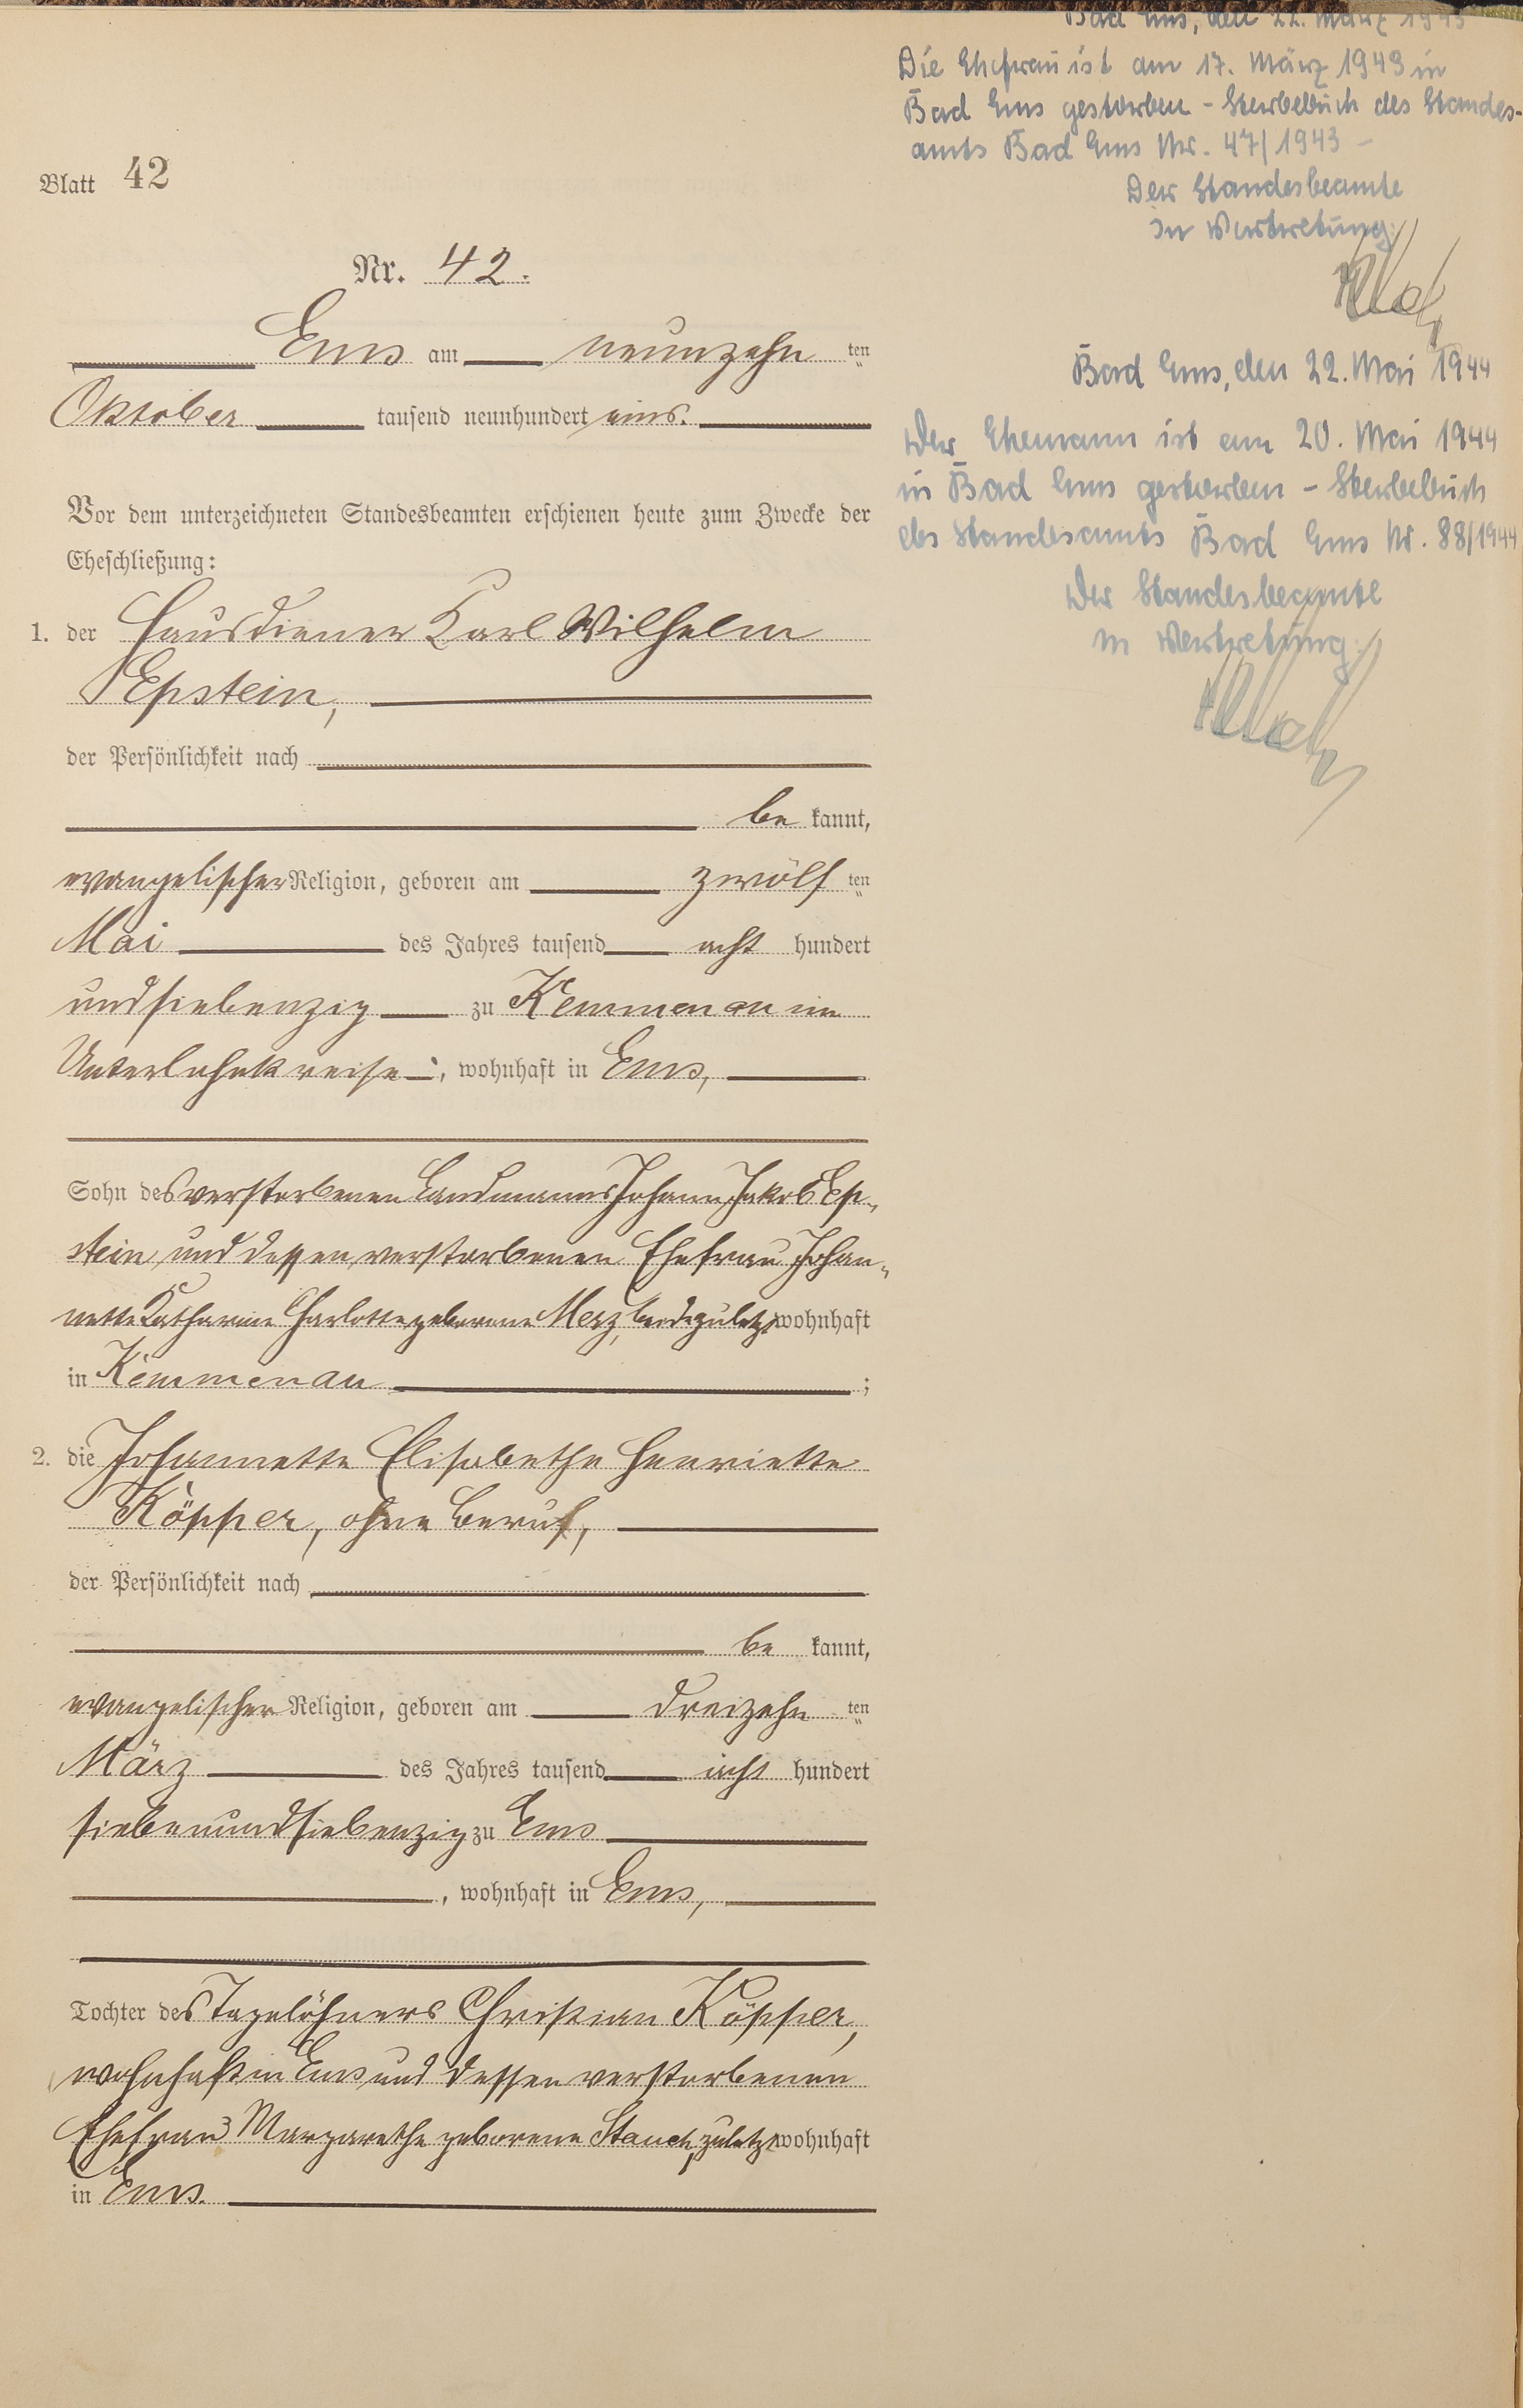 Bad Ems, den 22. März 1943
Die Ehefrau ist am 17. März 1943 in
Bad Ems gestorben - Sterbebuch des Standes-
amts Bad Ems Nr. 47/1943 -
Der Standesbeamte
in Vertretung:
Bad Ems, den 22. Mai 1944
Der Ehemann ist am 20. Mai 1944
in Bad Ems gestorben - Sterbebuch
des Standesamts Bad Ems Nr. 88/1944
Der Standesbeamte
in Vertretung:
Blatt 42
Nr. 42.
Ems am neunzehn ten
Oktober tausend neunhundert eins.
Vor dem unterzeichneten Standesbeamten erschienen heute zum Zwecke der
Eheschließung:
1. der Hausdiener Karl Wilhelm
Epstein,
der Persönlichkeit nach
be kannt,
evangelischer Religion, geboren am zwölf ten
Mai des Jahres tausend acht hundert
undsiebenzig zu Kemmenau im
Unterlahnkreise, wohnhaft in Ems,
Sohn des verstorbenen Landmanns Johann Jakob Ep-
stein und dessen verstorbenen Ehefrau Johan-
nette Katharine Charlotte geborene Merz, beide zuletzt wohnhaft
in Kemmenau ;
2. die Johannette Elisabethe Henriette
Köpper, ohne Beruf,
der Persönlichkeit nach
be kannt,
evangelischer Religion, geboren am dreizehn ten
März des Jahres tausend acht hundert
siebenundsiebenzig zu Ems
, wohnhaft in Ems,
Tochter des Tagelöhners Christian Köpper,
wohnhaft in Ems und dessen verstorbenen
Ehefrau Margarethe geborene Stauch, zuletzt wohnhaft
in Ems.